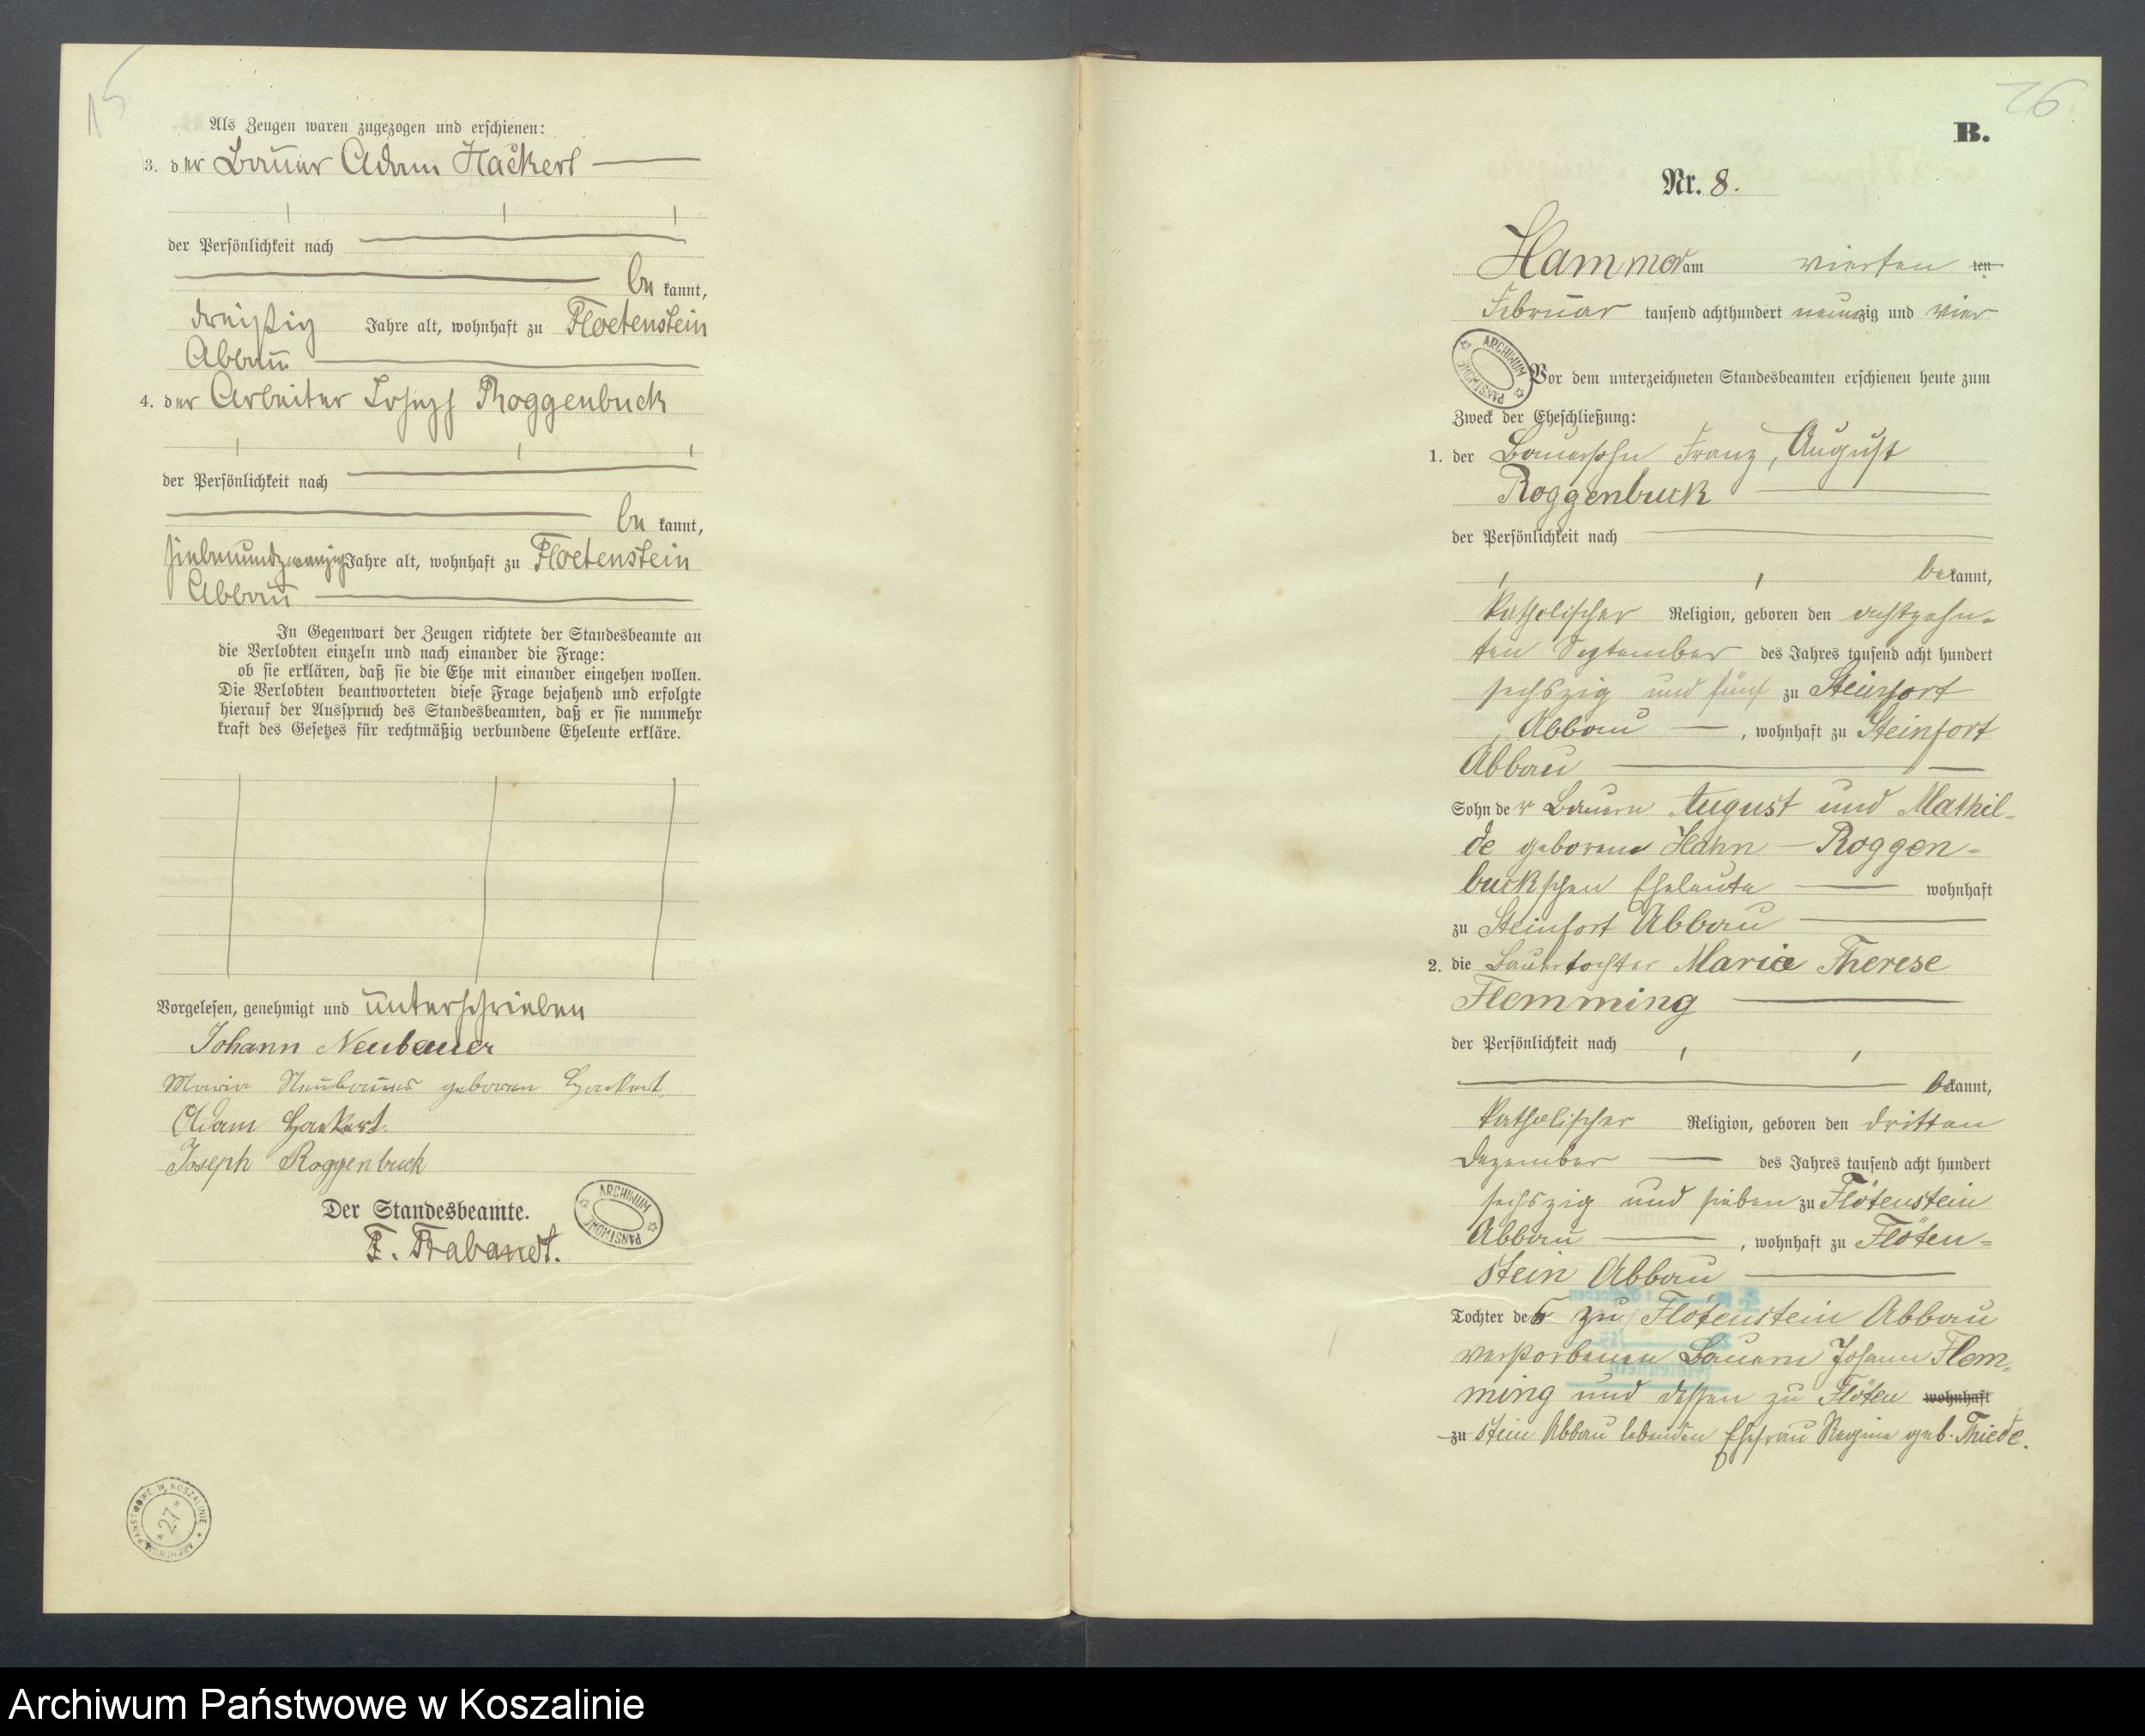 15
Als Zeugen waren zugezogen und erschienen:
3. der Bauer Adam Hackert
der Persönlichkeit nach
be kannt,
dreißig Jahre alt, wohnhaft zu Floetenstein
Abbau
4. der Arbeiter Joseph Roggenbuck
der Persönlichkeit nach
be kannt,
siebenundzwanzig Jahre alt, wohnhaft zu Floetenstein
Abbau
In Gegenwart der Zeugen richtete der Standesbeamte an
die Verlobten einzeln und nach einander die Frage:
ob sie erklären, daß sie die Ehe mit einander eingehen wollen.
Die Verlobten beantworteten diese Frage bejahend und erfolgte
hierauf der Ausspruch des Standesbeamten, daß er sie nunmehr
kraft des Gesetzes für rechtmäßig verbundene Eheleute erkläre.
Vorgelesen, genehmigt und unterschrieben
Johann Neubauer
Maria Neubauer geboren Hackert.
Adam Hackert.
Joseph Roggenbuck
Der Standesbeamte.
F. Trabandt.
ARCHIWUM PAŃSTWOWE
ARCHIWUM PAŃSTWOWE W KOSZALINIE
27
26
B.
Nr. 8.
Hammer am vierten ten
Februar tausend achthundert neunzig und vier
ARCHIWUM PAŃSTWOWE
Vor dem unterzeichneten Standesbeamten erschienen heute zum
Zweck der Eheschließung:
1. der Bauersohn Franz, August
Roggenbuck
der Persönlichkeit nach
be kannt,
katholischer Religion, geboren den achtzehn-
ten September des Jahres tausend acht hundert
sechszig und fünf zu Steinfort
Abbau, wohnhaft zu Steinfort
Abbau
Sohn der Bauern August und Mathil-
de geborene Hahn - Roggen-
buckschen Eheleute wohnhaft
zu Steinfort Abbau
2. die Bauertochter Maria Therese
Flemming
der Persönlichkeit nach
be kannt,
katholischer Religion, geboren den dritten
Dezember des Jahres tausend acht hundert
sechszig und sieben zu Flötenstein
Abbau, wohnhaft zu Flöten-
stein Abbau
Tochter des zu Flötenstein Abbau
verstorbenen Bauern Johann Flem-
ming und dessen zu Flöten wohnhaft
zu stein Abbau lebenden Ehefrau Regina geb. Thiede.
Archiwum Państwowe w Koszalinie